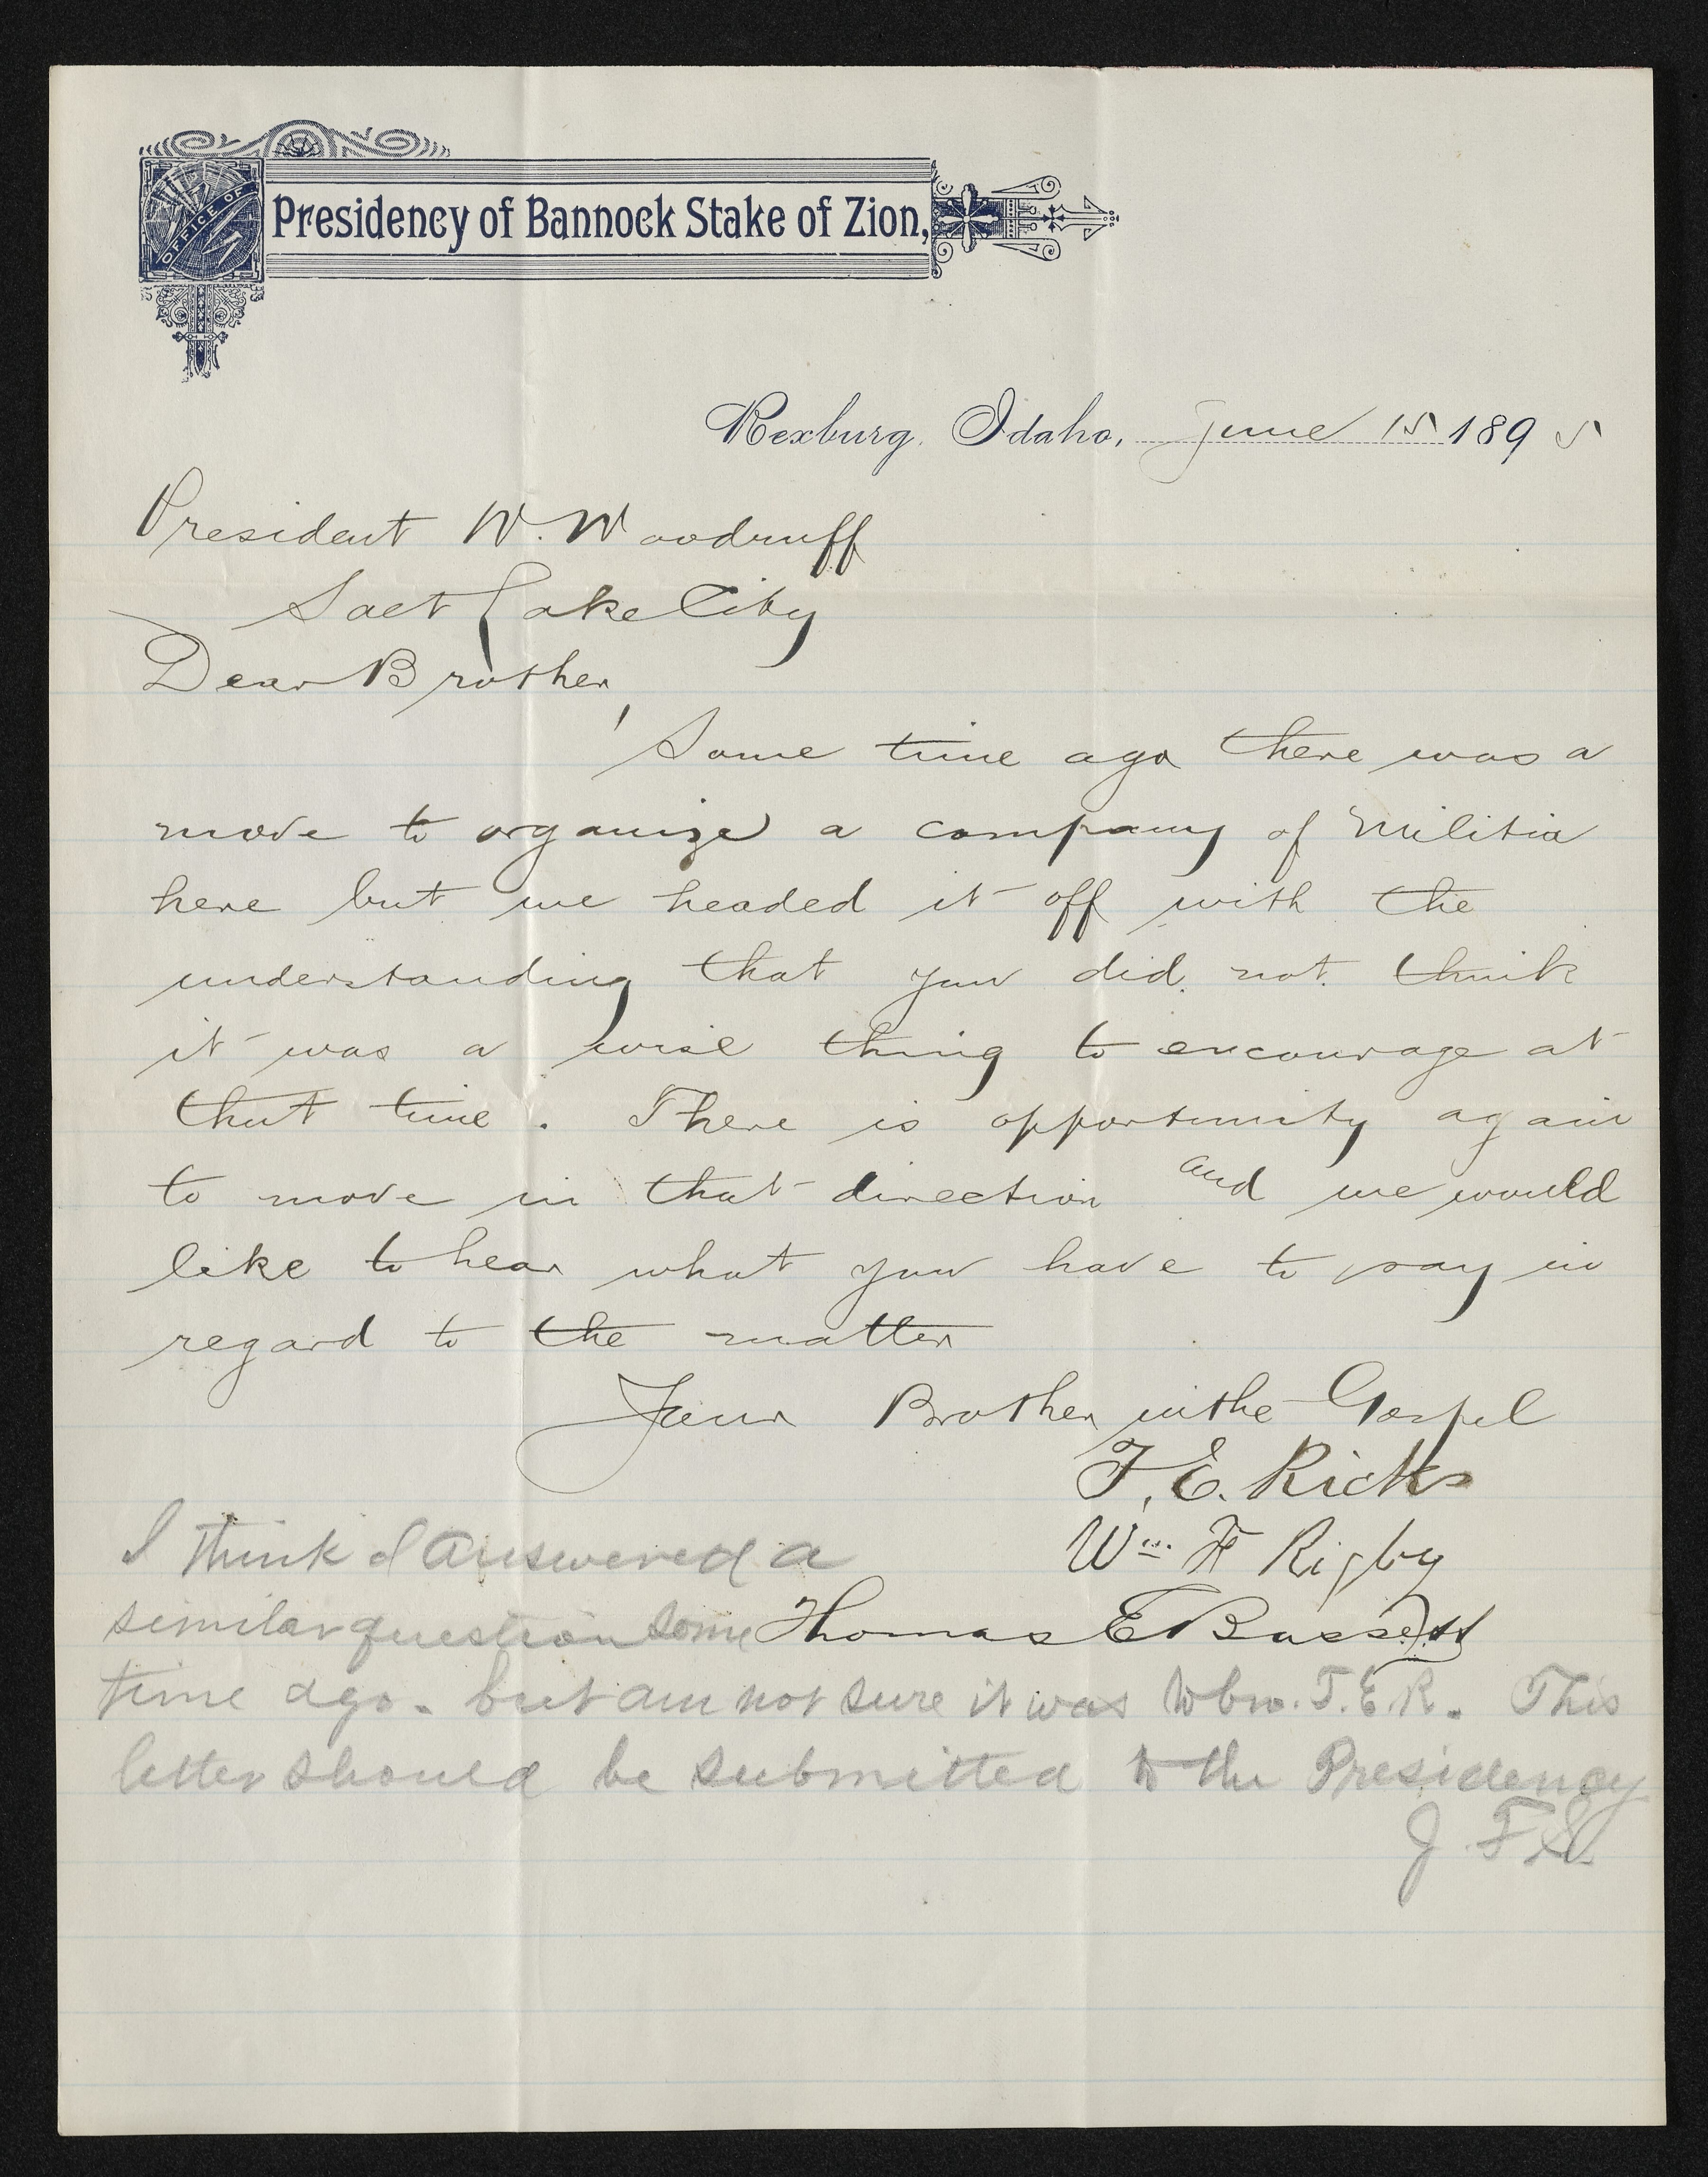 OFFICE OF
Presidency of Bannock Stake of Zion,
Rexburg, Idaho, June 15 1895
President W. Woodruff
Salt Lake City
Dear Brother,
Some time ago there was a
move to organize a company of Militia
here but we headed it off with the
understanding that you did not think
it was a wise thing to encourage at
that time. There is opportunity again
to move in that direction and we would
like to hear what you have to say in
regard to the matter
Your Brother in the Gospel
F. E. Ricks
Wm F Rigby
Thomas E Bassett
I think I answered a
similar question some
time ago. but am not sure it was to bro. T.E.R. This
letter should be submitted to the Presidency
J. F. S.